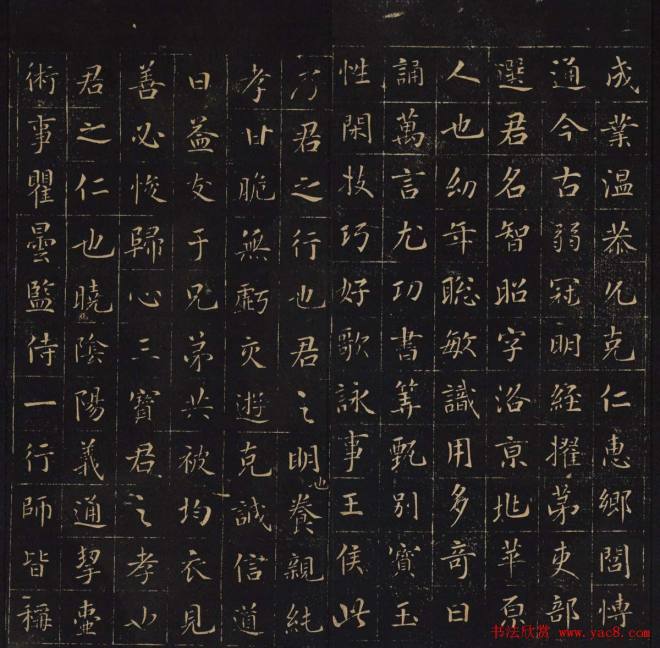 成業温恭允克仁惠鄉閭博
通今古弱冠明經擢第吏部
選君名智昭字洛京兆華原
人也幼年聡敏識用多奇日
誦萬言尤功書筭甄別寶玉
性閑技巧好歌詠事王侯此
乃君之行也君之明也養親純
孝甘脆無虧交遊克誠信道
日益友于兄弟共被均衣見
善必悛歸心三寶君之孝
君之仁也曉陰陽義通挈壷
術事瞿曇監侍一行師皆稱
书法欣赏 www.yac8.com